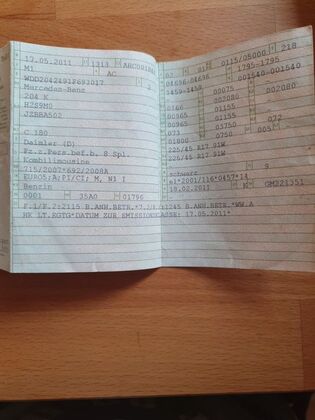 17.05.2011 1313
M1 AC 2
Mercedes-Benz
204 K
H2S9M0
JZBBA502
C 180
Daimler (D)
Fz.z.Pers.bef.b. 8 Spl.
Kombilimousine
715/2007*692/2008A
EURO5;A;PI/CI; M, N1 I
Benzin
0001 35A0 01796
F.1/F.2:2115 B.ANH.BETR.*7.2/8.2:1245 B.ANH.BETR.*WW.A
HK LT.EGTG*DATUM ZUR EMISSIONSKLASSE: 17.05.2011*
02 01 0115/05000 218
04596-04696 1795-1795
1459-1459 001540-001540
00075 002080
0166 002080
00965 01155
00965 01155
073 03750 072
01800 075
225/45 R17 91W
225/45 R17 91W
schwarz 9
e1*2001/116*0457*14
18.02.2011 K